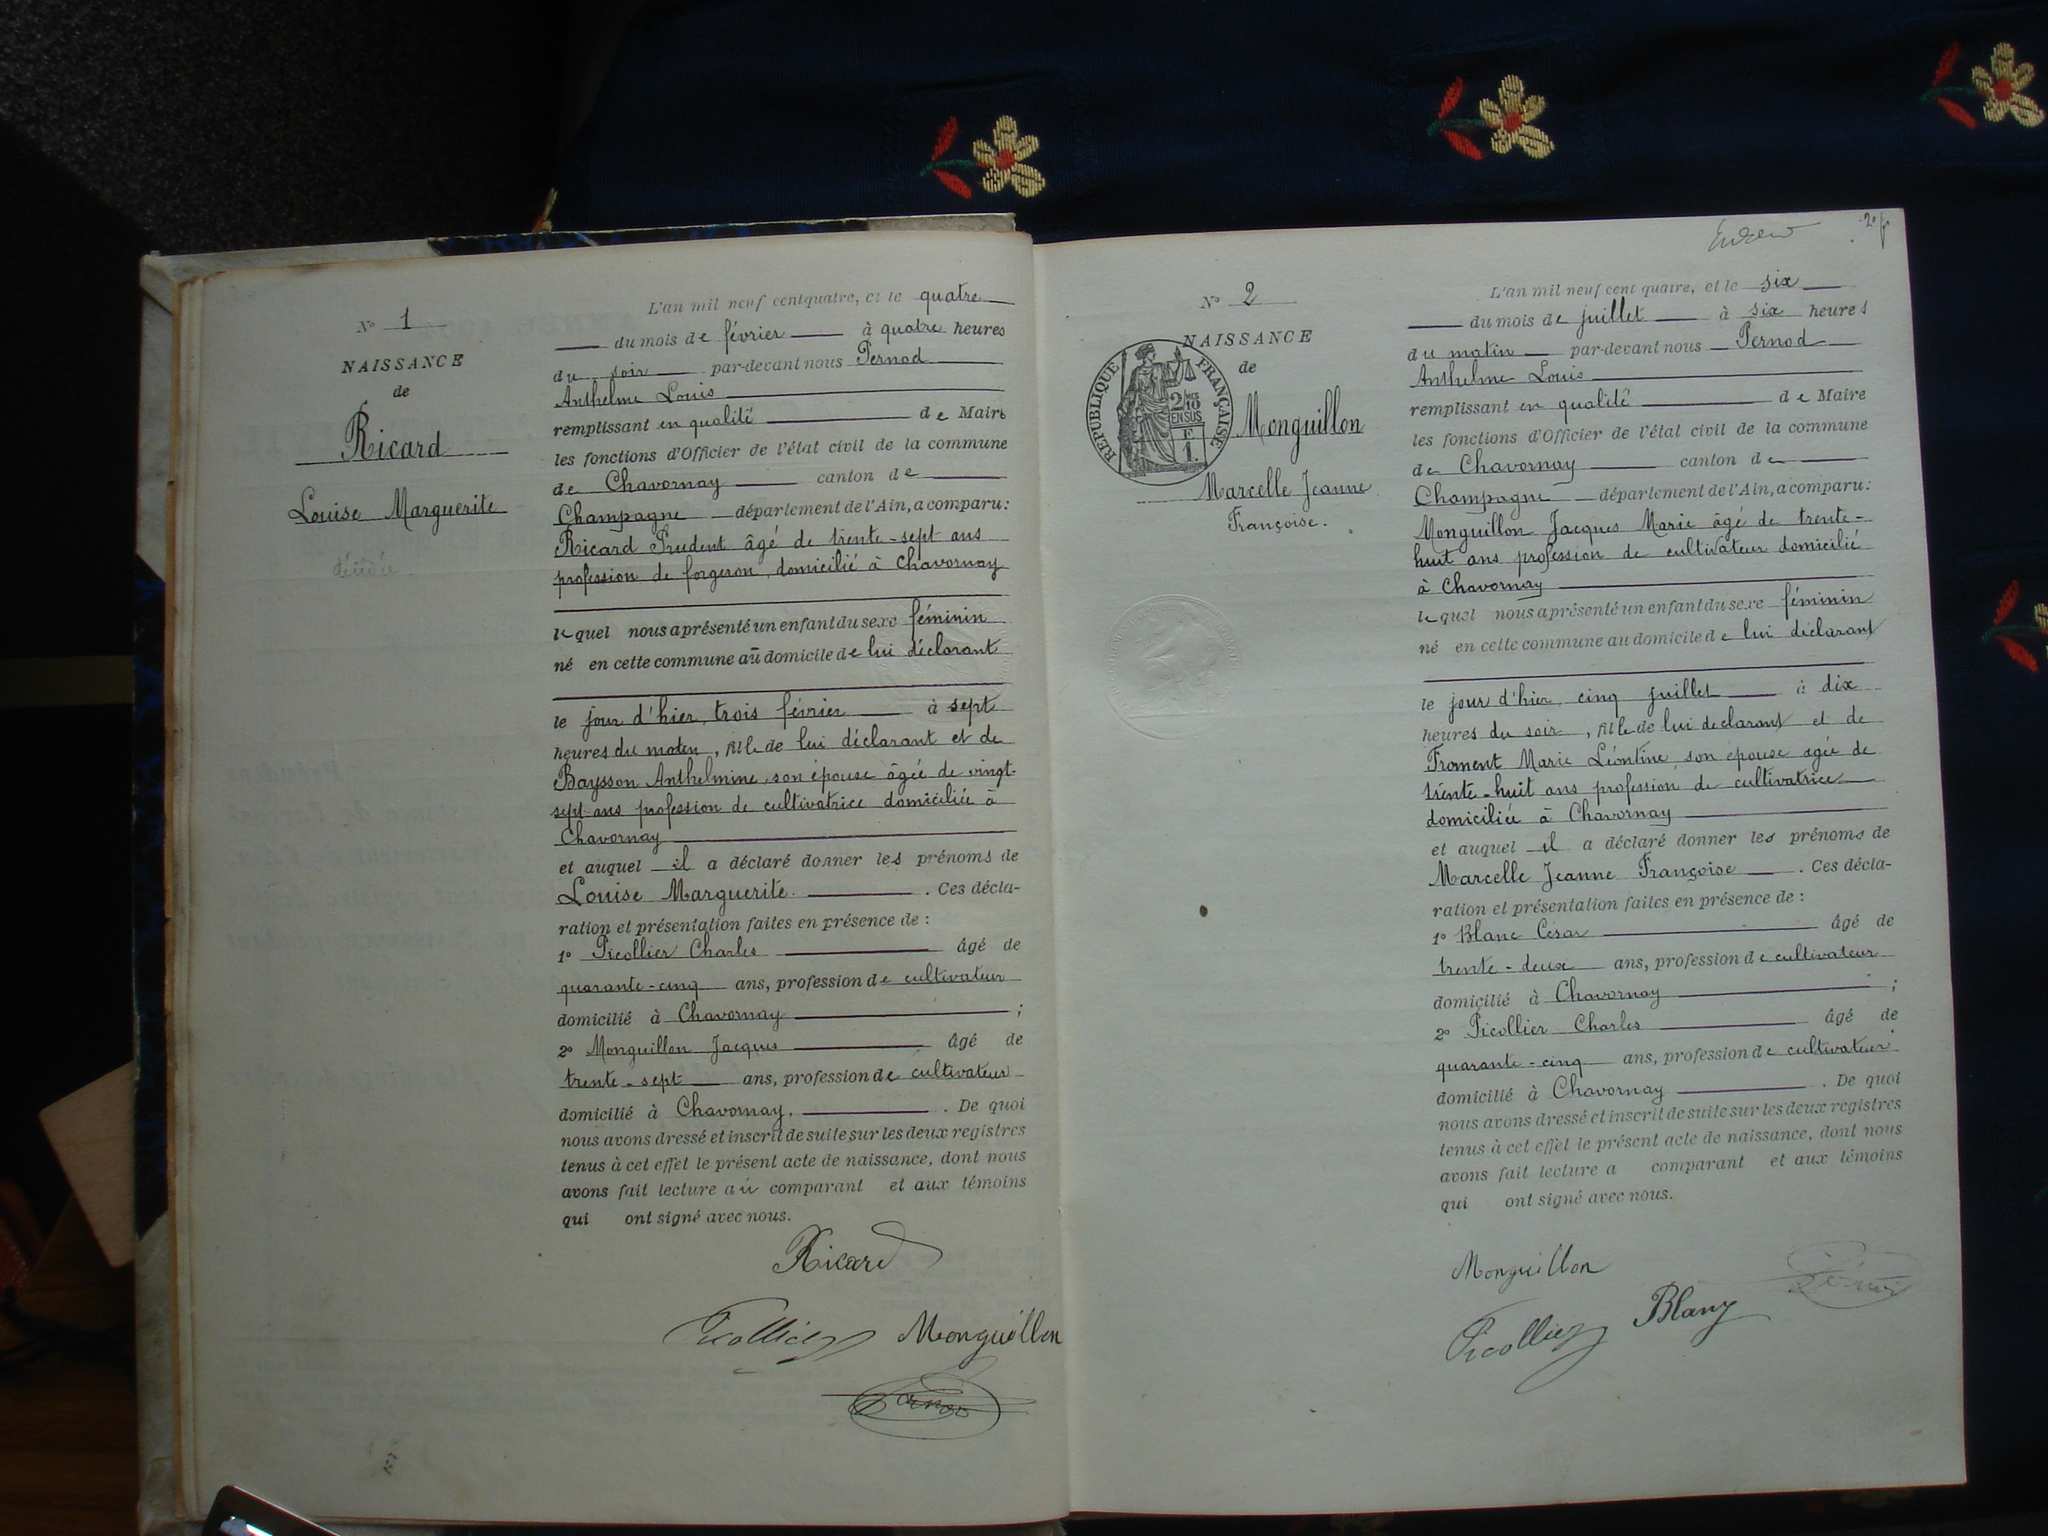 N° 1
NAISSANCE
de
Ricard
Louise Marguerite
L'an mil neuf cent quatre, et le quatre
du mois de février à quatre heures
du soir par-devant nous Pernod
Anthelme Louis
remplissant en qualité de Maire
les fonctions d'Officier de l'état civil de la commune
de Chavornay canton de
Champagne département de l'Ain, a comparu:
Ricard Prudent âgé de trente-sept ans
profession de forgeron, domicilié à Chavornay
lequel nous a présenté un enfant du sexe féminin
né en cette commune au domicile de lui déclarant
le jour d'hier, trois février à sept
heures du matin, fille de lui déclarant et de
Baysson Anthelmine, son épouse âgée de vingt-
sept ans profession de cultivatrice domiciliée à
Chavornay
et auquel il a déclaré donner les prénoms de
Louise Marguerite. . Ces décla-
ration et présentation faites en présence de :
1° Picollier Charles âgé de
quarante-cinq ans, profession de cultivateur
domicilié à Chavornay ;
2° Monguillon Jacques âgé de
trente-sept ans, profession de cultivateur
domicilié à Chavornay. . De quoi
nous avons dressé et inscrit de suite sur les deux registres
tenus à cet effet le présent acte de naissance, dont nous
avons fait lecture au comparant et aux témoins
qui ont signé avec nous.
Ricard
Picollier Monguillon
N° 2
NAISSANCE
de
REPUBLIQUE FRANÇAISE
2/10
EN SUS
F
1.
Monguillon
Marcelle Jeanne
Françoise.
2e f
L'an mil neuf cent quatre, et le six
du mois de juillet à six heures
du matin par-devant nous Pernod
Anthelme Louis
remplissant en qualité de Maire
les fonctions d'Officier de l'état civil de la commune
de Chavornay canton de
Champagne département de l'Ain, a comparu:
Monguillon Jacques Marie âgé de trente-
huit ans profession de cultivateur domicilié
à Chavornay
lequel nous a présenté un enfant du sexe féminin
né en cette commune au domicile de lui déclarant
le jour d'hier, cinq juillet à dix
heures du soir, fille de lui declarant et de
Froment Marie Léontine, son épouse agée de
trente-huit ans profession de cultivatrice
domiciliée à Chavornay
et auquel il a déclaré donner les prénoms de
Marcelle Jeanne Françoise . Ces décla-
ration et présentation faites en présence de :
1° Blanc César âgé de
trente-deux ans, profession de cultivateur
domicilié à Chavornay ;
2° Picollier Charles âgé de
quarante-cinq ans, profession de cultivateur
domicilié à Chavornay . De quoi
nous avons dressé et inscrit de suite sur les deux registres
tenus à cet effet le présent acte de naissance, dont nous
avons fait lecture a comparant et aux témoins
qui ont signé avec nous.
Monguillon
Picollier Blanc